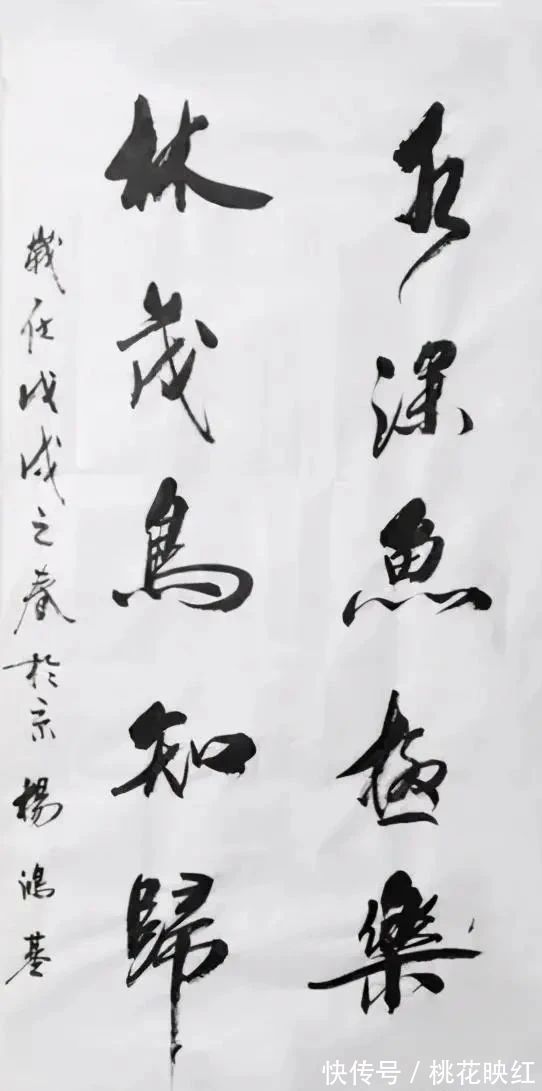 水深魚極樂
林茂鳥知歸
歲在戊戌之春於京楊鴻基
快传号/桃花映红